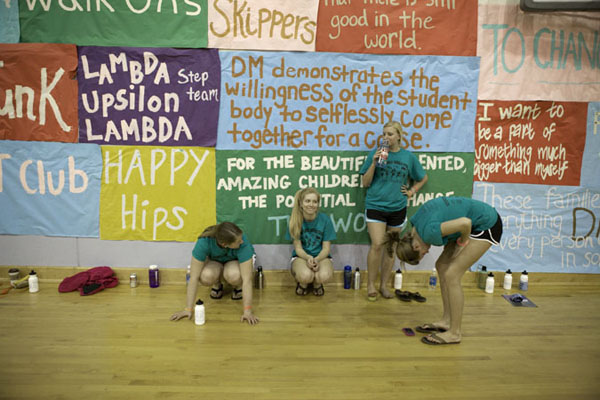 Walk Ons
Skippers
that there is still
good in the
world.
TO CHAN
unk
LAMBDA Step
team
Upsilon
LAMBDA
DM demonstrates the
willingness of the student
body to selflessly come
together for a cause.
I want to
be a part of
something much
bigger than myself
T Club
HAPPY
Hips
FOR THE BEAUTIF ENTED,
AMAZING CHILDRE
THE POTENTIAL ANGE
THE WO
These families
everything
very person
in so